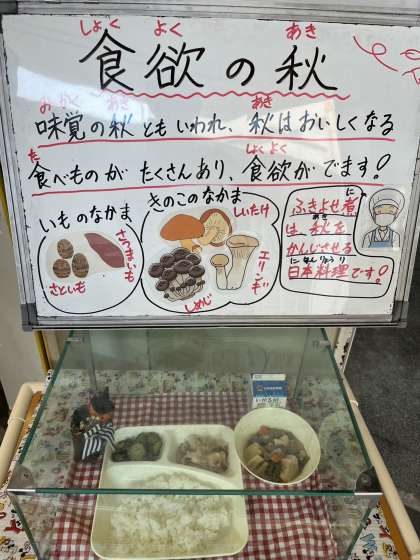 しょく よく あき
食欲の秋
みかく あき あき
味覚の秋ともいわれ、秋はおいしくなる
た しょくよく
食べものがたくさんあり、食欲がでます!
いものなかま
さといも
さつまいも
きのこのなかま
しいたけ
エリンギ
しめじ
に
ふきよせ煮
あき
は秋を
かんじさせる
にほんりょうり
日本料理です!